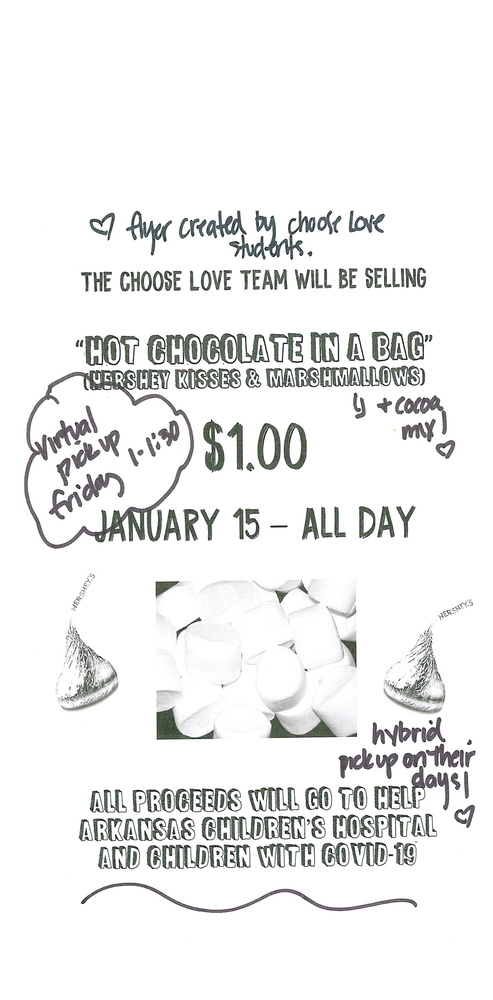 ♡ flyer created by choose love
students.
THE CHOOSE LOVE TEAM WILL BE SELLING
“HOT CHOCOLATE IN A BAG”
(HERSHEY KISSES & MARSHMALLOWS)
+ cocoa
mix! ♡
virtual
pickup
friday 1-1:30
$1.00
JANUARY 15 – ALL DAY
HERSHEY'S
HERSHEY'S
hybrid
pickup on their
days!
♡
ALL PROCEEDS WILL GO TO HELP
ARKANSAS CHILDREN'S HOSPITAL
AND CHILDREN WITH COVID-19